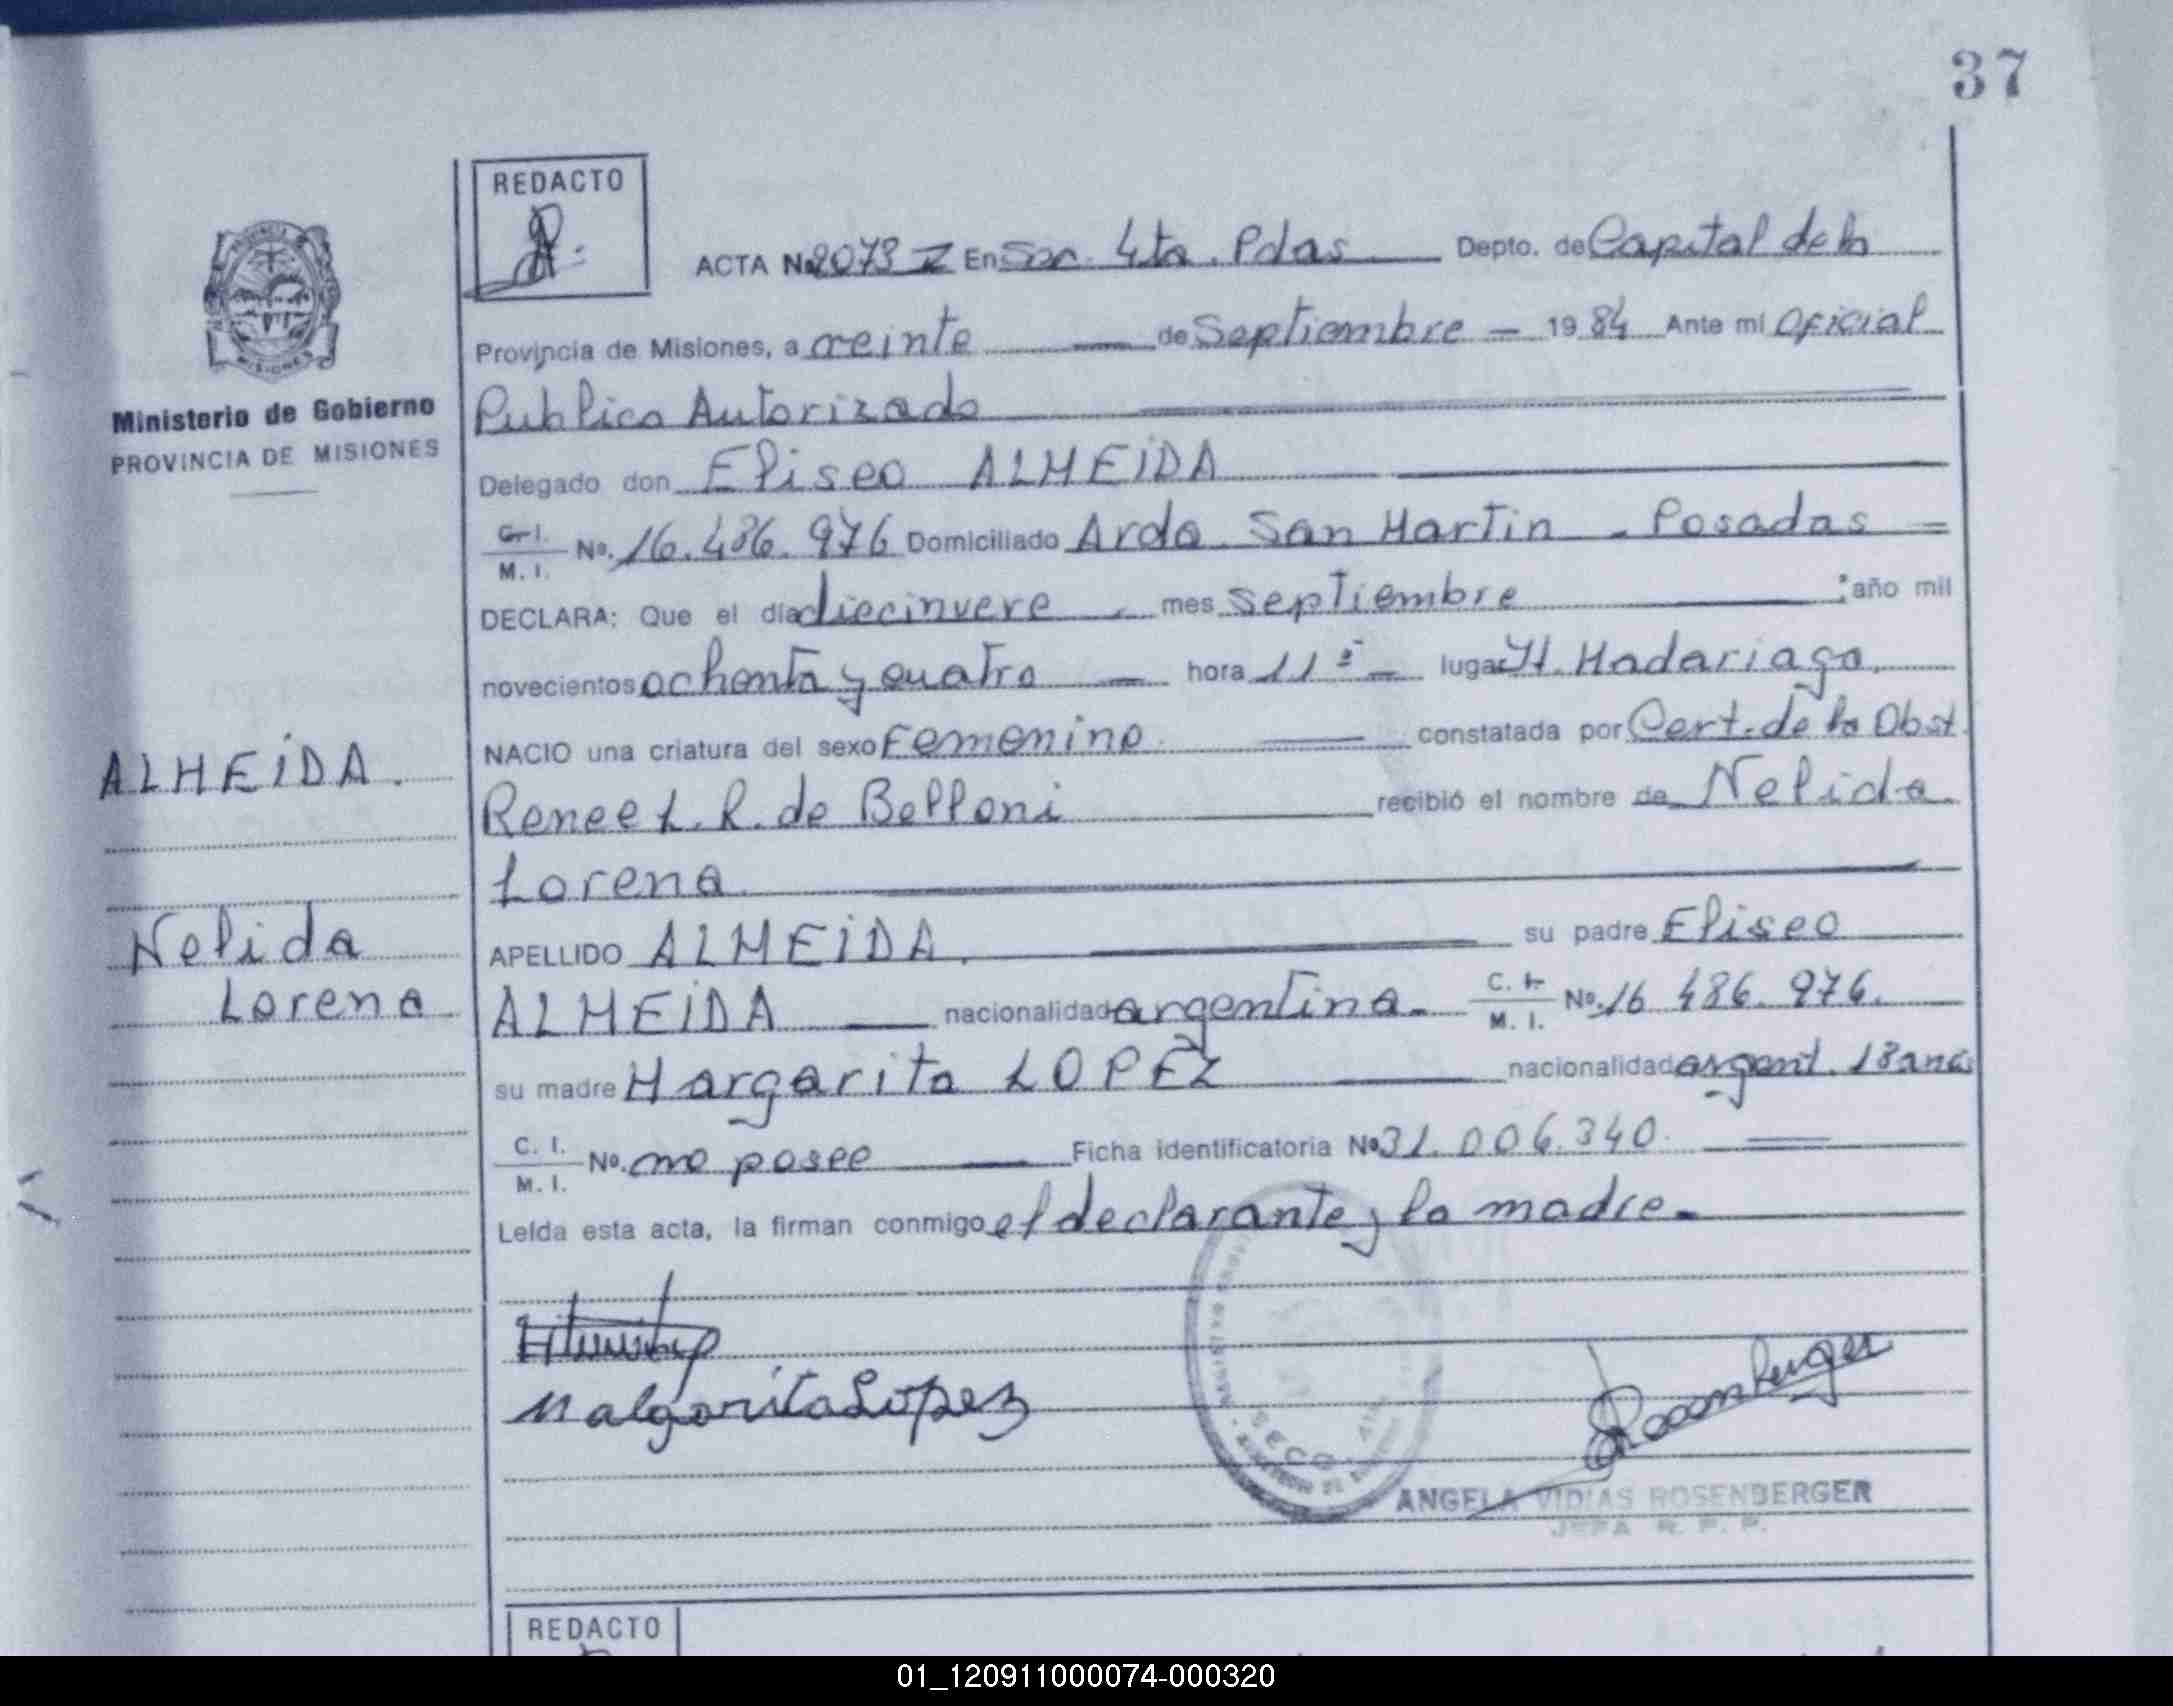 37
REDACTO
ACTA No. 2073 Z En Sec. 4ta. Pdas. Depto. de Capital de la
Provincia de Misiones, a veinte de Septiembre 19 84 Ante mi Oficial
Publico Autorizado
Delegado don Eliseo ALMEIDA
C. I. M. I. No. 16.486.976 Domiciliado Avda. San Martin - Posadas
DECLARA: Que el día diecinueve mes septiembre año mil
novecientos ochenta y cuatro hora 11 lugar H. Madariaga.
NACIO una criatura del sexo Femenino constatada por Cert. de la Obst.
Renee L. R. de Belloni recibió el nombre de Nelida
Lorena
APELLIDO ALMEIDA. su padre Eliseo
ALMEIDA nacionalidad argentina. C. I. M. I. No. 16 486.976.
su madre Margarita LOPEZ nacionalidad argent. 18 anos
C. I. M. I. No. no posee Ficha identificatoria No 31.006.340.
Leida esta acta, la firman conmigo el declarante y la madre.
Malgarita Lopez
Rosenberger
ANGELA VIDIAS ROSENBERGER
JEFA R. P. P.
PROVINCIA DE
MISIONES
Ministerio de Gobierno
PROVINCIA DE MISIONES
ALMEIDA.
Nelida
Lorena
REDACTO
01_120911000074-000320